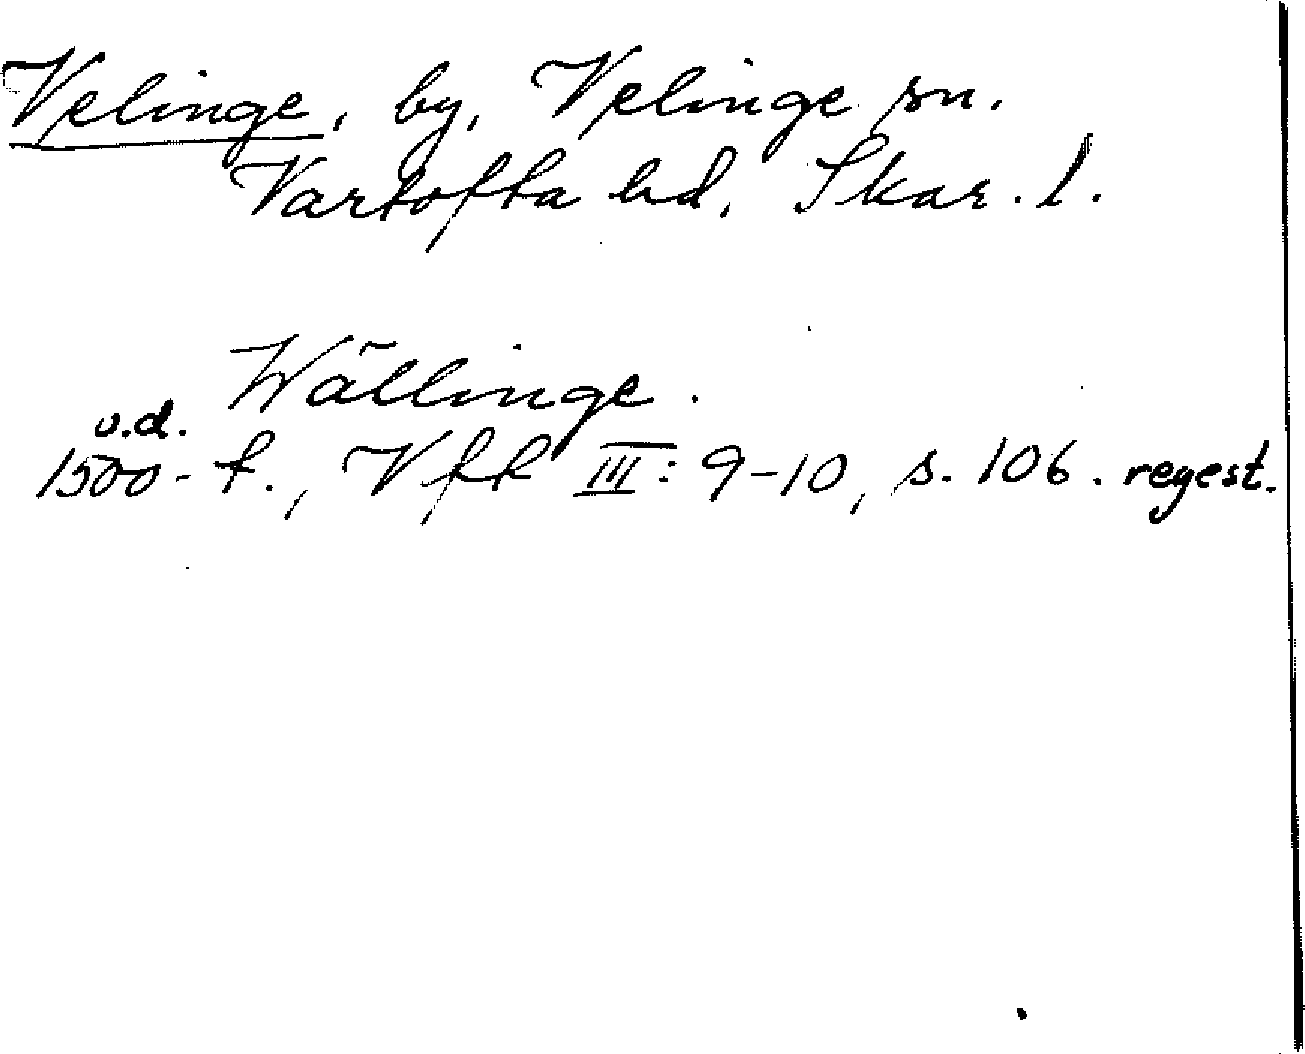 Velinge, by, Velinge sn.
Vartofta hd, Skar. l.
Wällinge.
o.d.
1500-t., Vft III: 9-10, s. 106. regest.